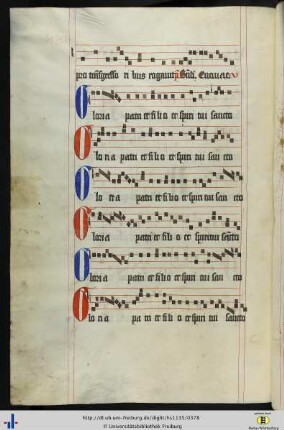 pro transgresso ri bus rogavit. Euouae
Gloria patri et fili o et spiri tui sancto
Glo ri a patri et fi li o et spiri tui san cto
Glo ri a patri et fili o et spiri tui san cto
Gloria patri et fili o et spiritui sancto
Gloria patri et fi li o et spiri tui san cto
Glo ri a pa tri et fi li o et spiri tui sancto
© Universitätsbibliothek Freiburg